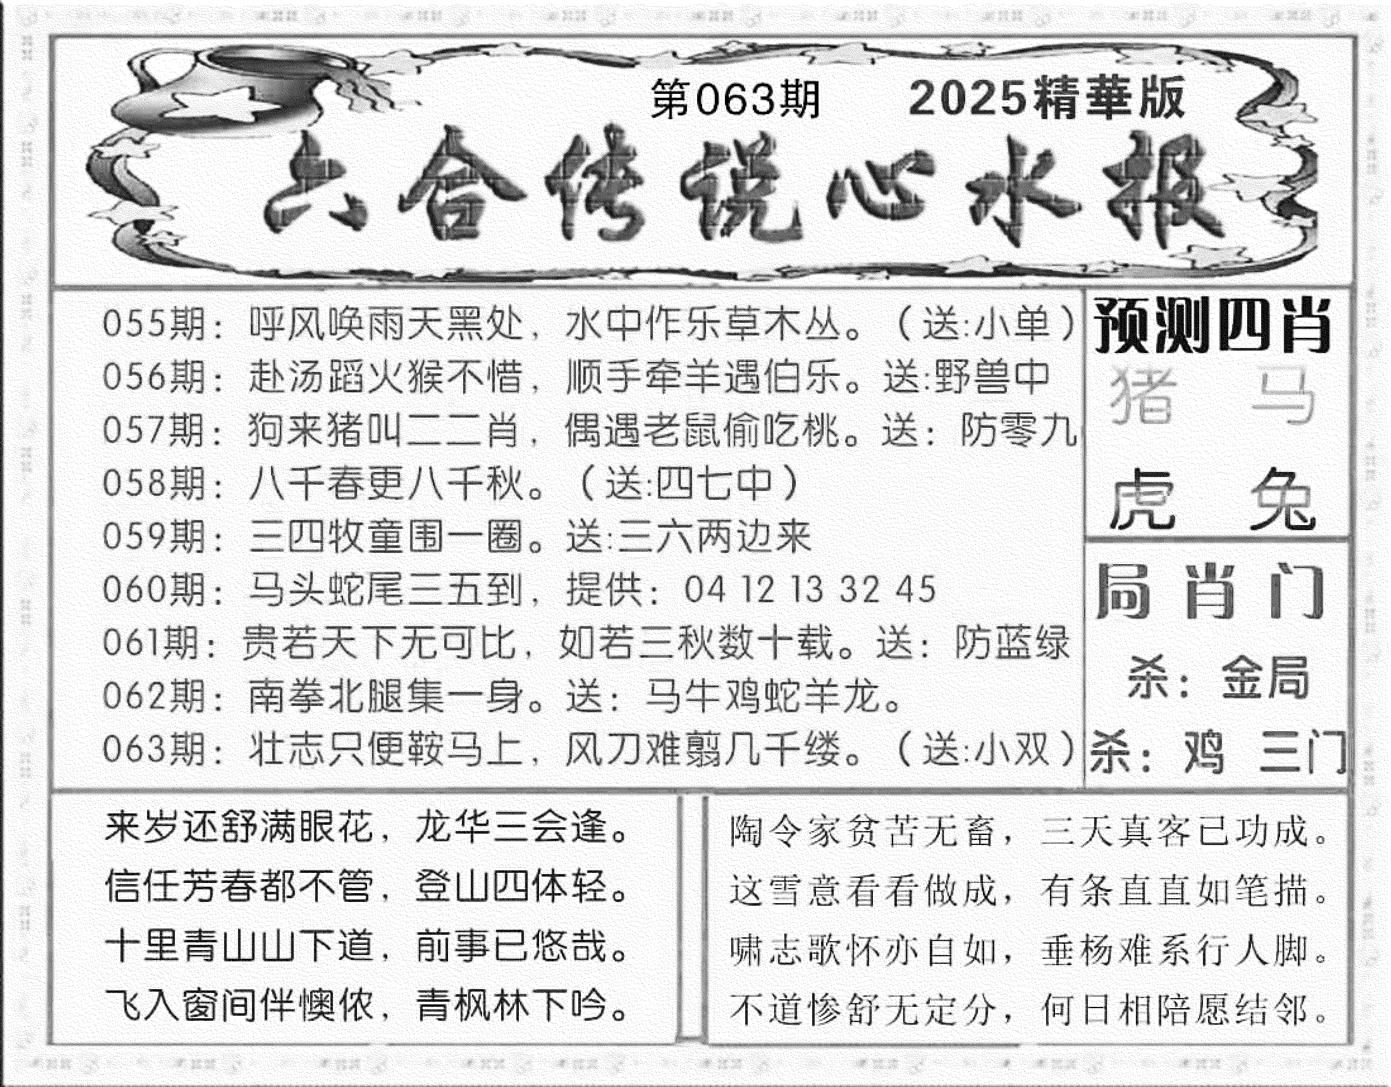 第063期 2025精華版
六合传说心水报
055期：呼风唤雨天黑处，水中作乐草木丛。（送:小单）
056期：赴汤蹈火猴不惜，顺手牵羊遇伯乐。送:野兽中
057期：狗来猪叫二二肖，偶遇老鼠偷吃桃。送：防零九
058期：八千春更八千秋。（送:四七中）
059期：三四牧童围一圈。送:三六两边来
060期：马头蛇尾三五到，提供：04 12 13 32 45
061期：贵若天下无可比，如若三秋数十载。送：防蓝绿
062期：南拳北腿集一身。送：马牛鸡蛇羊龙。
063期：壮志只便鞍马上，风刀难翦几千缕。（送:小双）
预测四肖
猪 马
虎 兔
局肖门
杀：金局
杀：鸡 三门
来岁还舒满眼花，龙华三会逢。
信任芳春都不管，登山四体轻。
十里青山山下道，前事已悠哉。
飞入窗间伴懊侬，青枫林下吟。
陶令家贫苦无畜，三天真客已功成。
这雪意看看做成，有条直直如笔描。
啸志歌怀亦自如，垂杨难系行人脚。
不道惨舒无定分，何日相陪愿结邻。